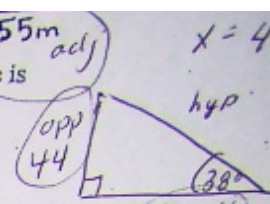 55m
adj
x = 4
is
hyp
opp
44
38°